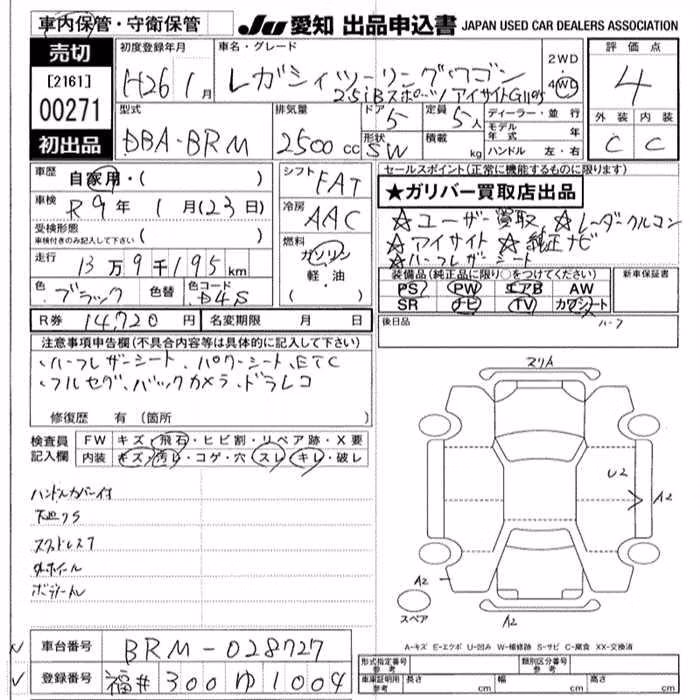 車内保管・守衛保管
JU 愛知 出品申込書 JAPAN USED CAR DEALERS ASSOCIATION
売切
[2161]
00271
初出品
初度登録年月
H26 1月
車名・グレード
レガシィツーリングワゴン
2.5iBスポーツアイサイトGパケ
2WD
4WD
評価点
4
外装 内装
C C
型式
DBA-BRM
排気量
2500cc
ドア
5
形状
SW
定員
5人
積載
kg
ディーラー・並行
モデル年式 年
ハンドル 左・右
車歴
自家用・( )
車検
R9年 1月(23日)
受検形態
車検付きのみ記入して下さい ( )
走行
13万9千195km
色
ブラック
色替
色コード
D4S
シフト
FAT
冷房
AAC
燃料
ガソリン
軽・油
( )
R券 14,720円 名変期限 月 日
セールスポイント(正常に機能するものに限ります)
★ガリバー買取店出品
☆ユーザー買取 ☆レーダークルコン
☆アイサイト ☆純正ナビ
☆ハーフレザーシート
装備品(純正品に限り○をつけてください)
PS PW エアB AW
SR ナビ TV カワシート
新車保証書
後日品
ハーフ
注意事項申告欄(不具合内容等は具体的に記入して下さい)
・ハーフレザーシート、パワーシート、ETC
・フルセグ、バックカメラ、ドラレコ
修復歴 有(箇所
検査員記入欄
FW キズ・飛石・ヒビ割・リペア跡・X要
内装 キズ・汚レ・コゲ・穴・スレ・キレ・破レ
ハンドルカバー付
下廻りS
スタッドレス7
外ホイール
マリA
U2
A2
A2
A2
スペア
A-キズ E-エクボ U-凹み W-補修跡 S-サビ C-腐食 XX-交換済
車台番号 BRM-028727
登録番号 福井 300 ゆ 1004
形式指定番号 参考
類別区分番号 参考
車庫証明用 参考
長さ cm 幅 cm 高さ cm